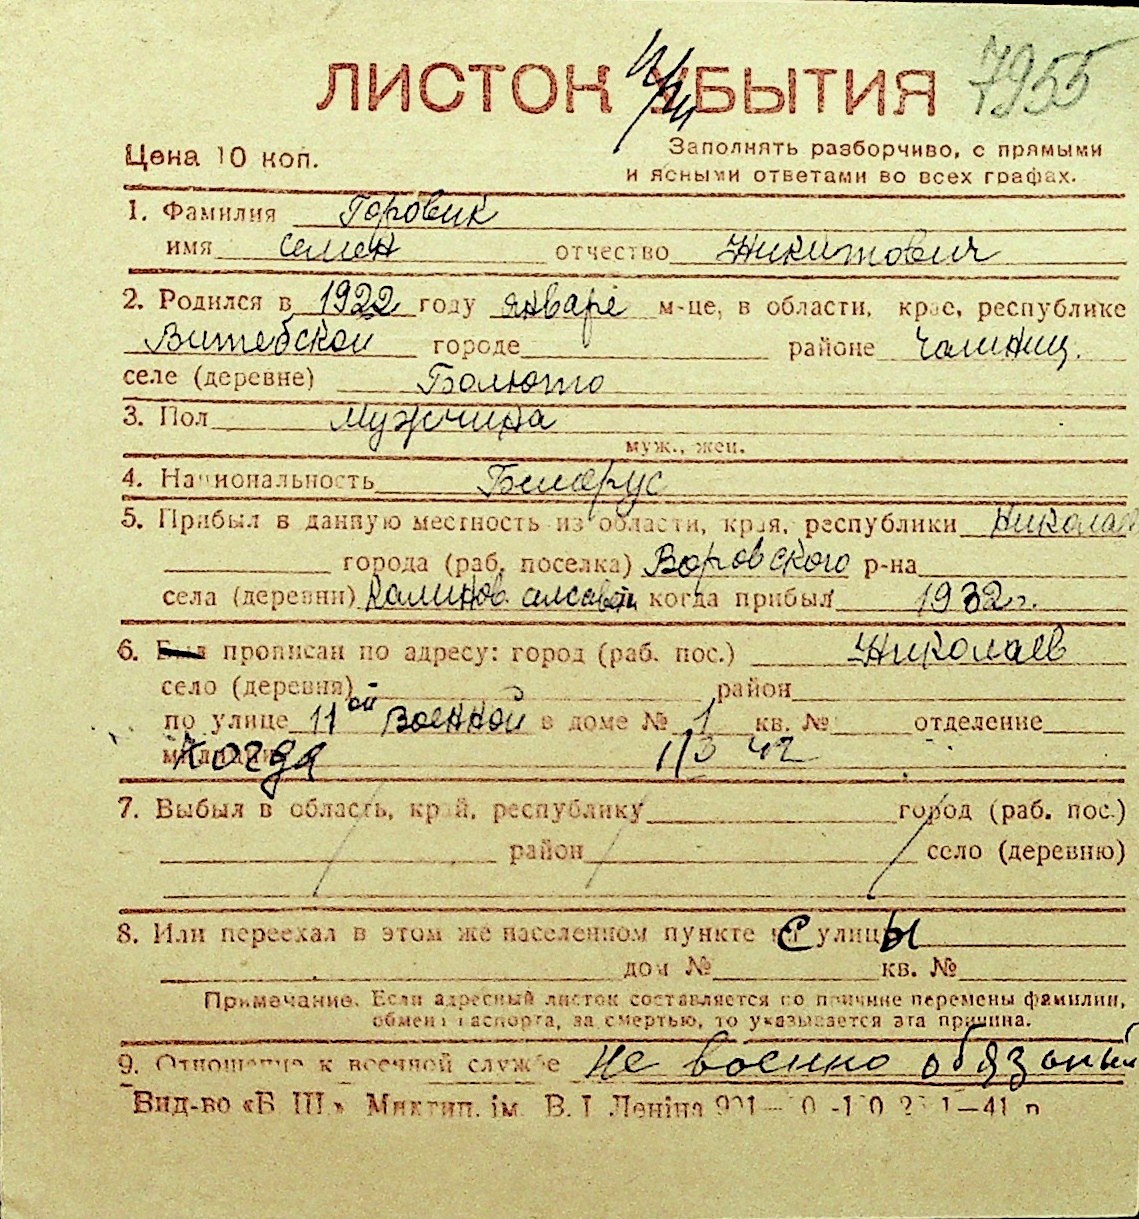 ЛИСТОК УБЫТИЯ 7955
Цена 10 коп.
Заполнять разборчиво, с прямыми
и ясными ответами во всех графах.
1. Фамилия Горовик
имя Семен отчество Никитович
2. Родился в 1922 году январе м-це, в области, крае, республике
Витебской городе районе
селе (деревне) Болюто
3. Пол мужчина
муж., жен.
4. Национальность Беларус
5. Прибыл в данную местность из области, края, республики Николаев
города (раб. поселка) Воровского р-на
села (деревни) Калинов. когда прибыл 1932 г.
6. Был прописан по адресу: город (раб. пос.) Николаев
село (деревня) район
по улице 11ой Военной в доме № 1 кв. № отделение
милиции Когда 1/3 42
7. Выбыл в область, край, республику город (раб. пос.)
район село (деревню)
8. Или переехал в этом же населенном пункте с улицы
дом № кв. №
Примечание. Если адресный листок составляется по причине перемены фамилии,
обмена паспорта, за смертью, то указывается эта причина.
9. Отношение к военной службе Не военно обязаный
Вид-во «Б Ш» Миктип. ім. В. І Леніна